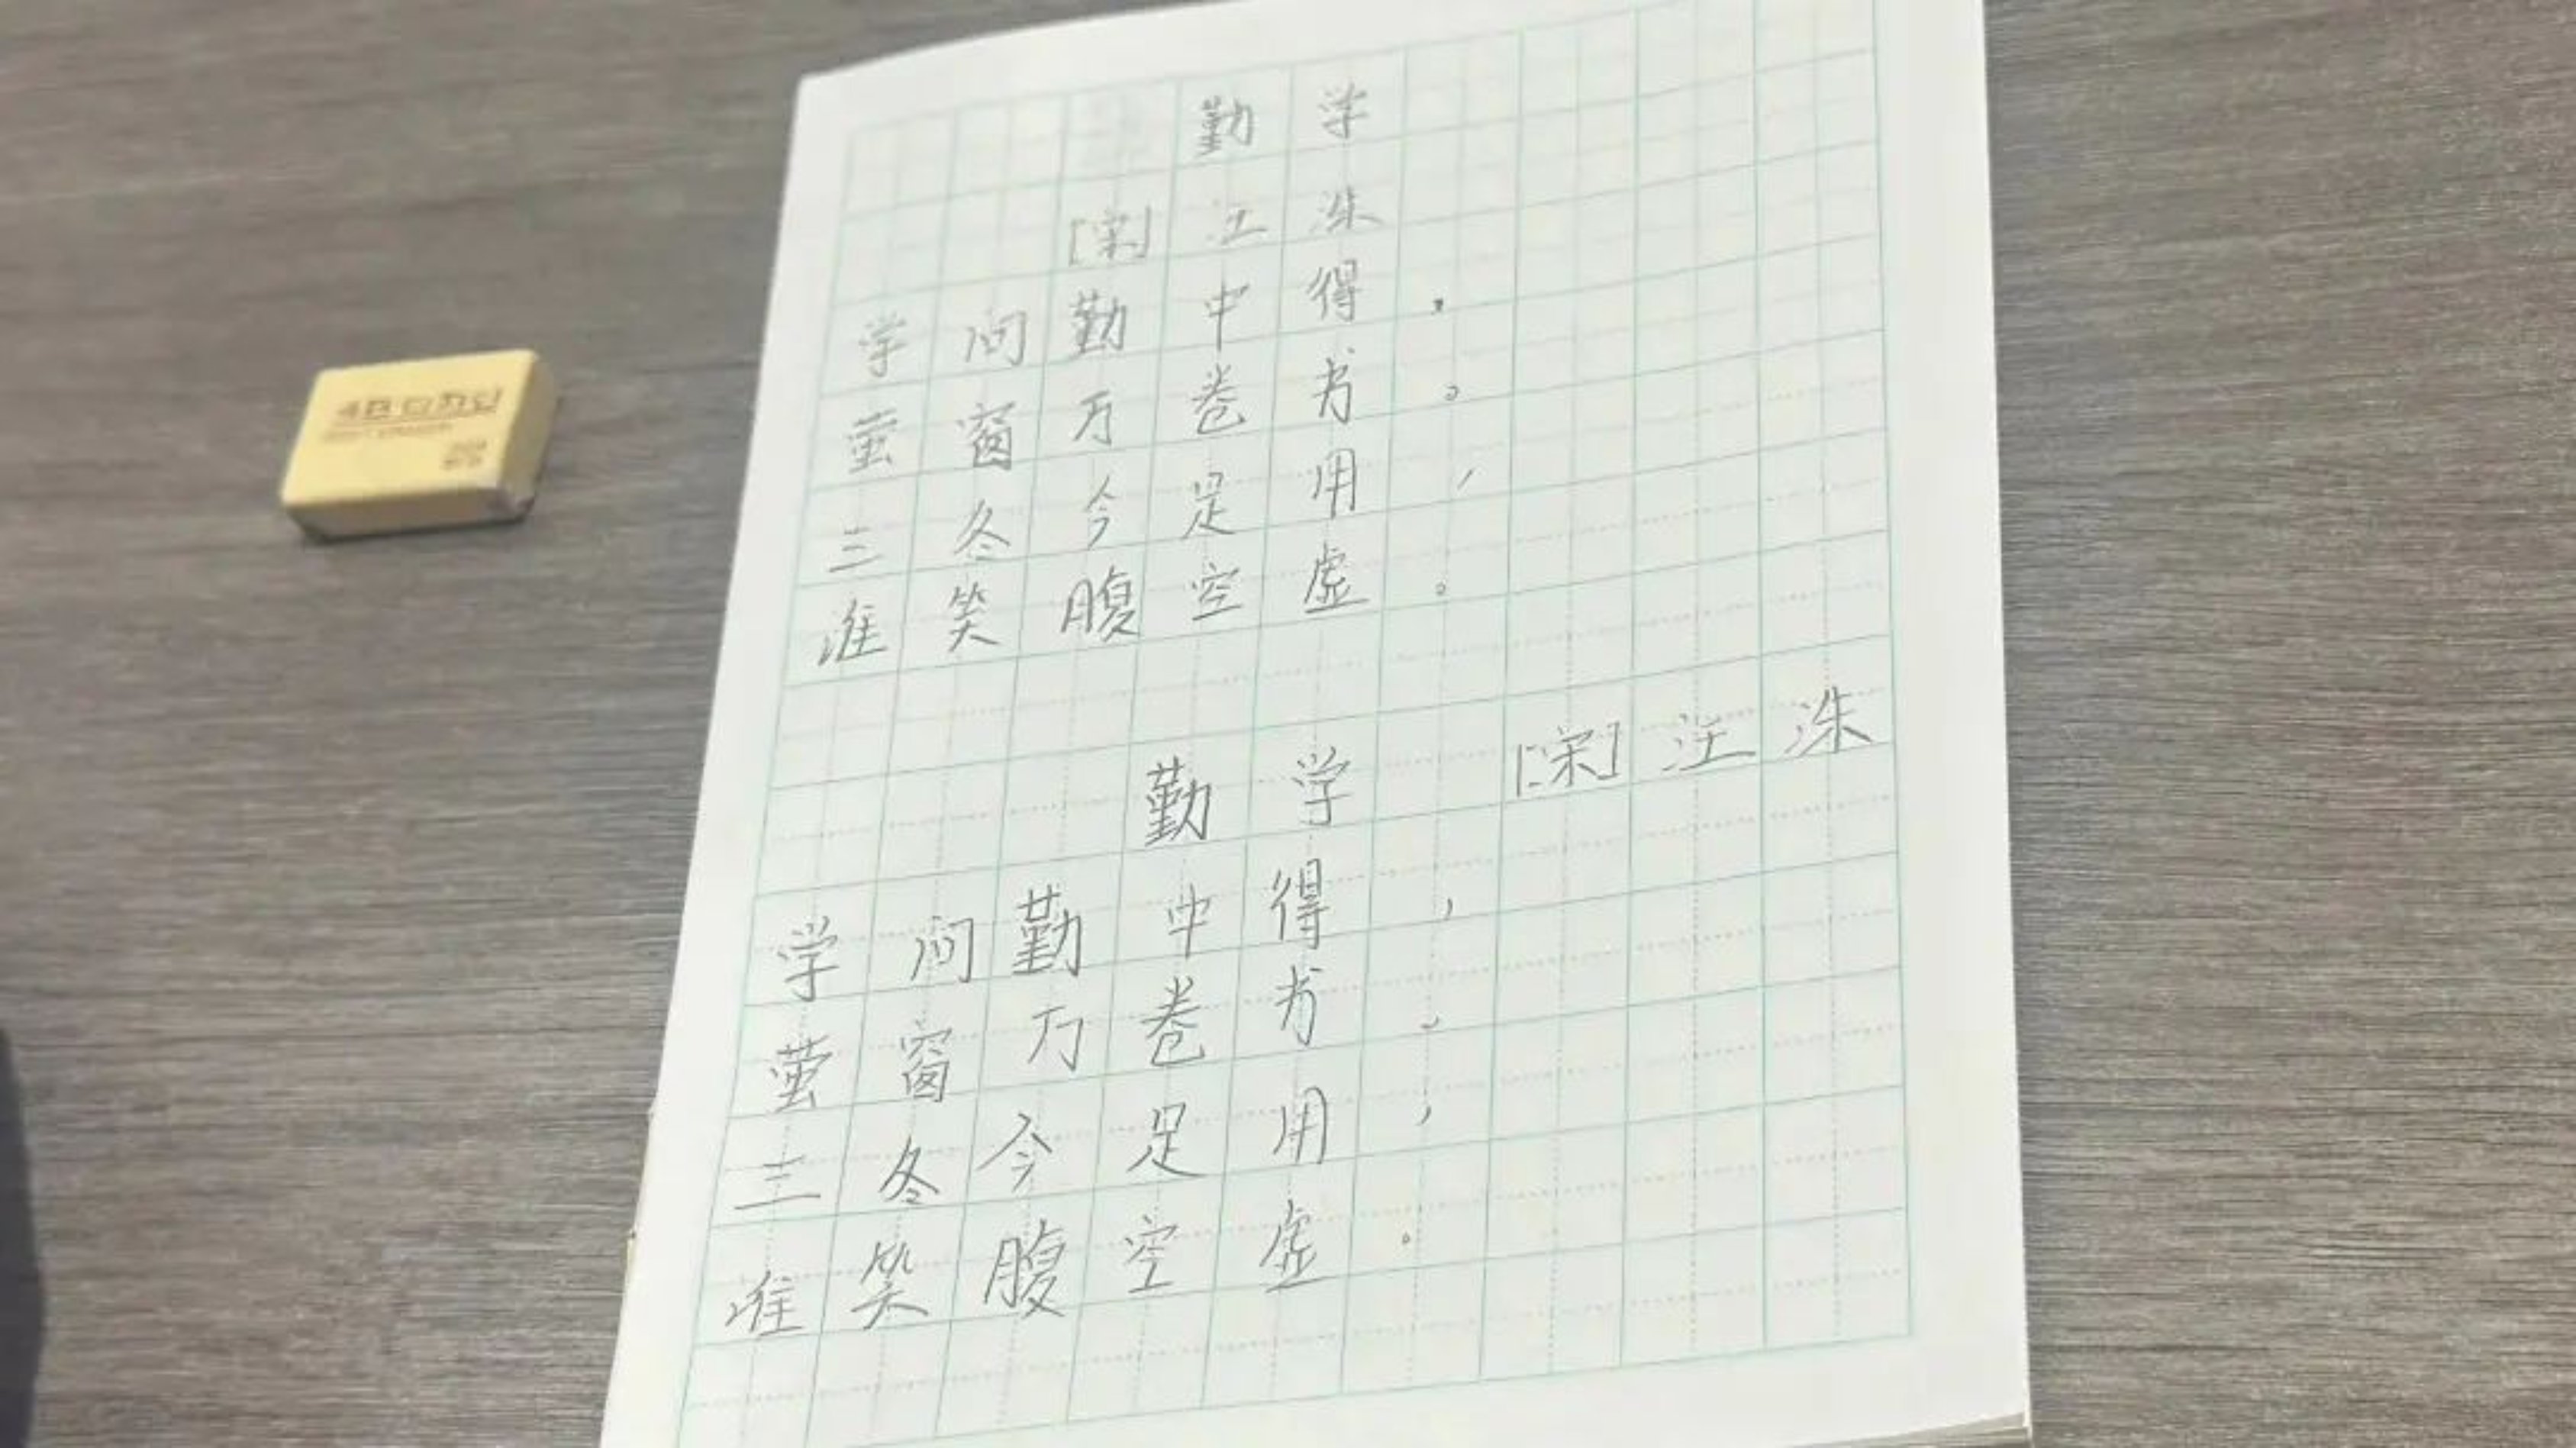 勤学
[宋] 汪洙
学问勤中得,
萤窗万卷书。
三冬今足用,
谁笑腹空虚。
勤学 [宋] 汪洙
学问勤中得,
萤窗万卷书。
三冬今足用,
谁笑腹空虚。